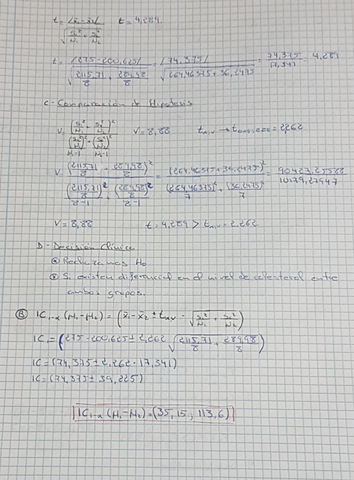 t = |x̄₁ - x̄₂| / √(s₁²/n₁ + s₂²/n₂) t = 4,289
t = |275 - 200,625| / √(2115,71/8 + 289,98/8) = |74,375| / √(264,46375 + 36,2475) = 74,375 / 17,341 = 4,289
C - Comparación de Hipótesis
V = (s₁²/n₁ + s₂²/n₂)² / ((s₁²/n₁)²/(n₁-1) + (s₂²/n₂)²/(n₂-1)) V = 8,88 t
V = (2115,71/8 + 289,98/8)² / ((2115,71/8)²/(8-1) + (289,98/8)²/(8-1)) = (264,46375 + 36,2475)² / ((264,46375)²/7 + (36,2475)²/7) = 90423,25588 / 10179,27947
V = 8,88 t = 4,289 > tα,v = 2,262
D - Decisión Clínica
Rechazamos H₀
Si existen diferencias en el nivel de colesterol entre
ambos grupos.
B IC₁₋α (μ₁-μ₂) = (x̄₁ - x̄₂ ± tα,v · √(s₁²/n₁ + s₂²/n₂))
IC = (275 - 200,625 ± 2,262 √(2115,71/8 + 289,98/8))
IC = (74,375 ± 2,262 · 17,341)
IC = (74,375 ± 39,225)
IC₁₋α (μ₁-μ₂) = (35,15 ; 113,6)